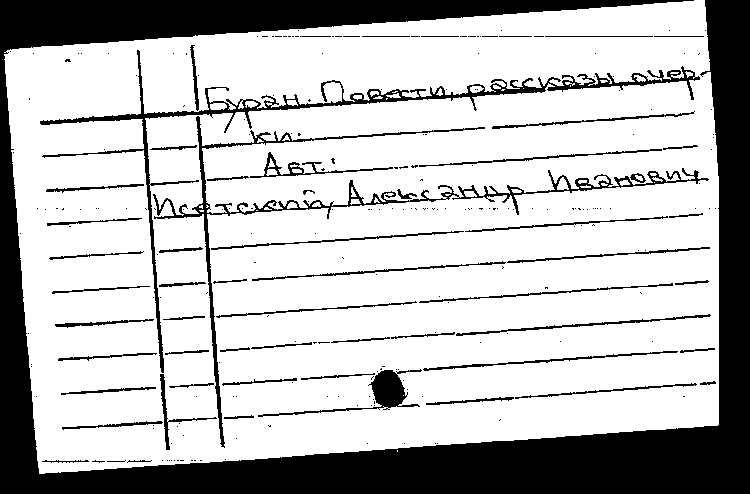 Буран. Повести, рассказы, очер-
ки.
Авт.:
Исетский, Александр Иванович